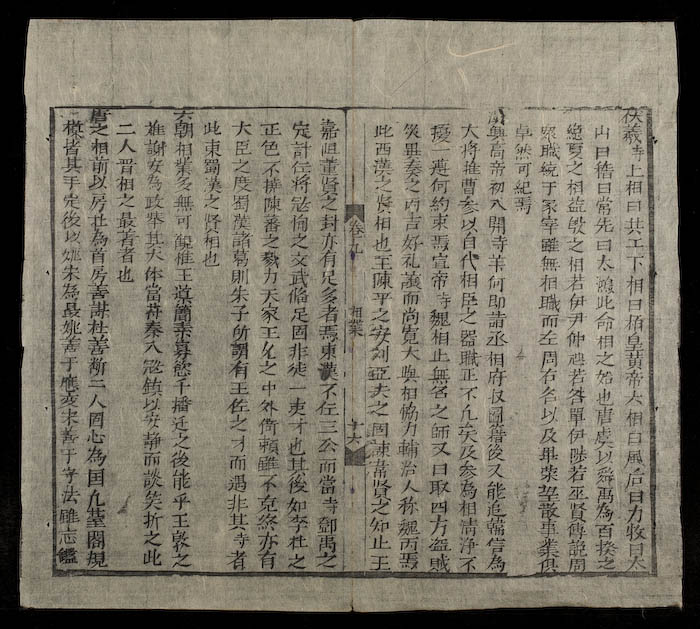 伏羲寺上相曰共工下相曰栢皇黄帝六相曰風后曰力牧曰太
山曰稽曰常先曰太鴻此命相之始也唐虞以舜禹為百揆之
總夏之相益殷之相若伊尹仲虺若咎單伊陟若巫賢傅說周
衆職統于冢宰雖無相職而左周右召以及畢榮等散車業俱
卓然可紀焉
漢興高帝初入関寺萧何即請丞相府収圖籍後又能追韓信為
大將推曹參以自代相臣之器職正不凢矣及參為相清净不
擾一遵何約束焉宣帝寺魏相止無名之師又曰取四方盜賊
災異奏之丙吉好礼義而尚寛大與相恊力輔治人称魏丙焉
此西漢之賢相也王陳平之安刘亞夫之固諫韋賢之知止王
卷十九 相業 十六
嘉沮董賢之封亦有足多者焉東漢不任三公而當寺鄧禹之
定計任將冦恂之文武俻足固非徒一吏才也其後如李杜之
正色不撓陳蕃之戮力天家王允之中外倚頼雖不克終亦有
大臣之度蜀漢諸葛則朱子所謂有王佐之才而遇非其寺者
此東蜀漢之賢相也
六朝相業多無可觀惟王導簡素寡慾于播迁之後能乎王敦之
难謝安為政举其大体當苻秦入冦鎮以安静而談笑折之此
二人晋相之最著者也
唐之相前以房杜為首房善謀杜善断二人同心為国凢䑓閣規
模皆其手定後以姚宋為最姚善于應变宋善于守法雖志鑑